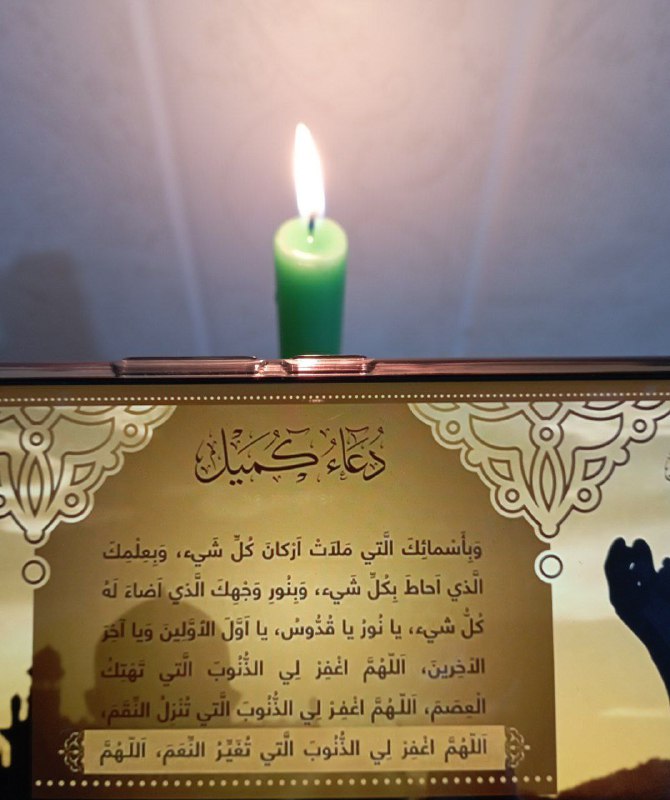 دُعَاءُ كُمَيْل
وَبِأَسْمائِكَ الَّتي مَلَاَتْ اَرْكانَ كُلِّ شَيء، وَبِعِلْمِكَ
الَّذي اَحاطَ بِكُلِّ شَيء، وَبِنُورِ وَجْهِكَ الَّذي اَضاءَ لَهُ
كُلُّ شيء، يا نُورُ يا قُدُّوسُ، يا اَوَّلَ الاَوَّلِينَ وَيا آخِرَ
الآخِرينَ، اَللّهُمَّ اغْفِرْ لِي الذُّنُوبَ الَّتي تَهْتِكُ
الْعِصَمَ، اَللّهُمَّ اغْفِرْ لِي الذُّنُوبَ الَّتي تُنْزِلُ النِّقَمَ،
اَللّهُمَّ اغْفِرْ لِي الذُّنُوبَ الَّتي تُغَيِّرُ النِّعَمَ، اَللّهُمَّ